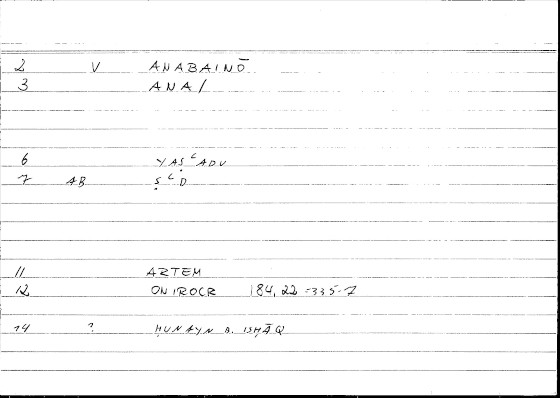 2 V ANABAINŌ
3 ANA/
6 YAṢʿADU
7 AB ṢʿD
11 ARTEM
12 ONIROCR 184, 22 = 335-7
14 ? ḤUNAYN B. ISḤĀQ